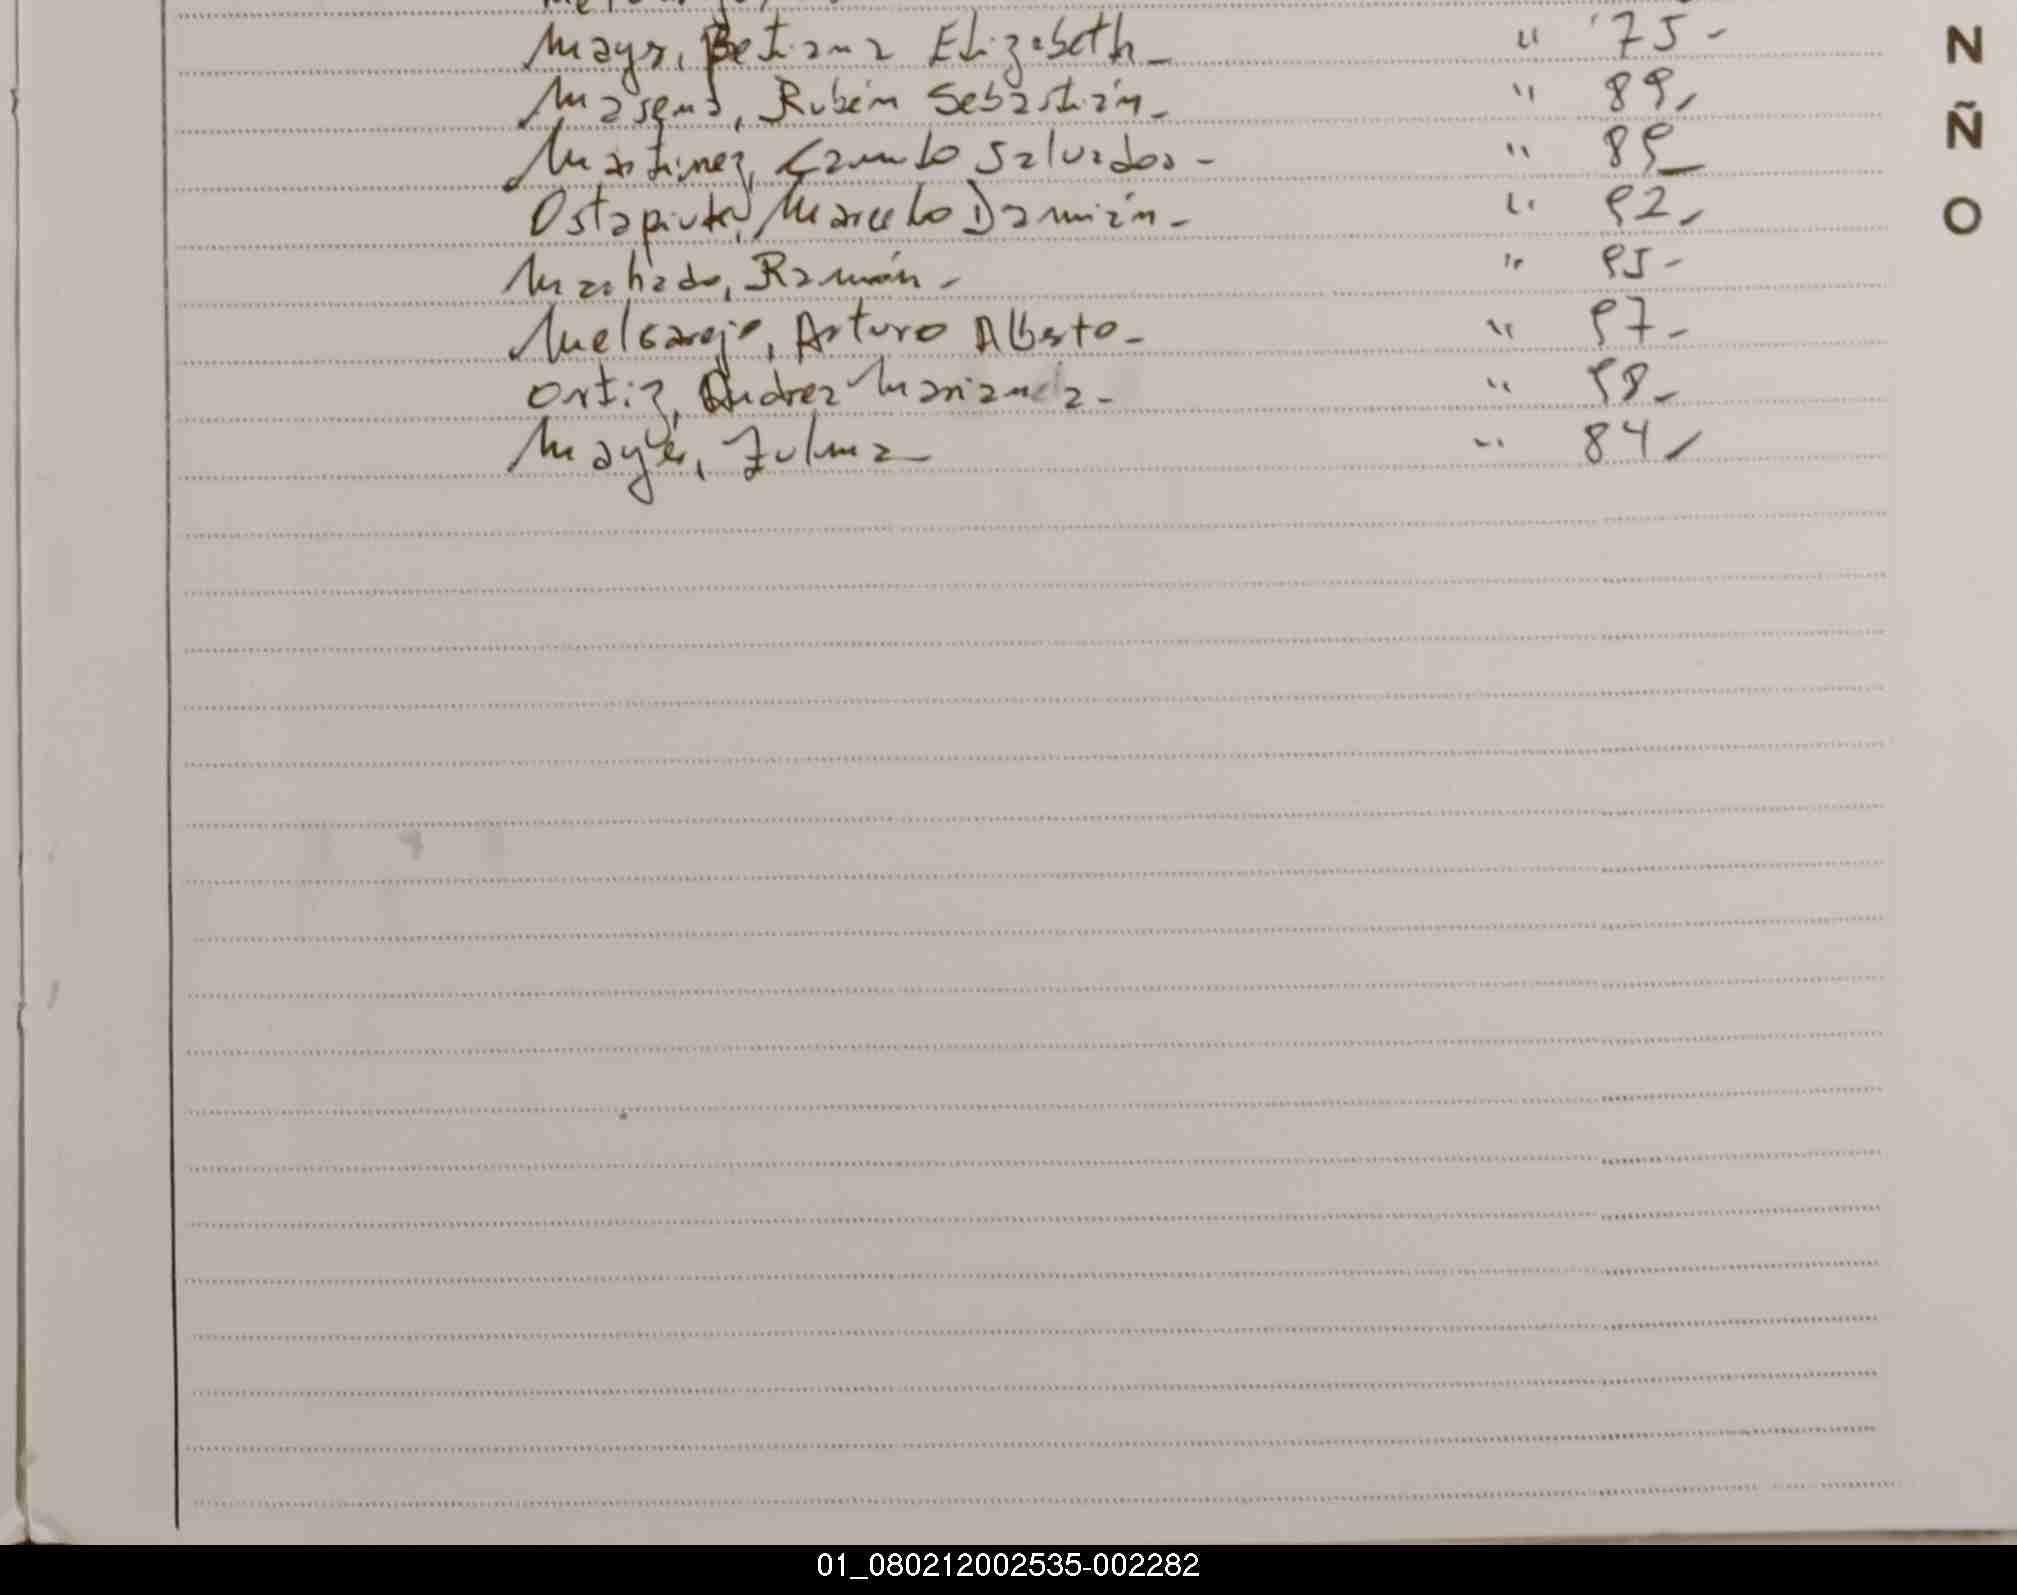 Mayr, Betiana Elizabeth - " 75 -
Masena, Rubén Sebastián - " 89 -
Martinez, Camilo Salvador - " 89 -
Marcelo Damián - " 92 -
Machado, Ramón - " 95 -
Melgarejo, Arturo Alberto - " 97 -
Ortiz, Andrea Marianela - " 98 -
Mayer, Zulma - " 84 -
N
Ñ
O
01_080212002535-002282